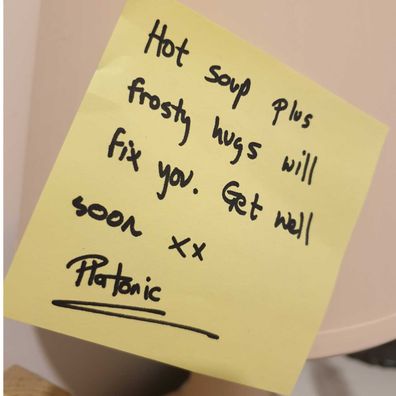 Hot soup plus
frosty hugs will
fix you. Get well
soon xx
Platonic